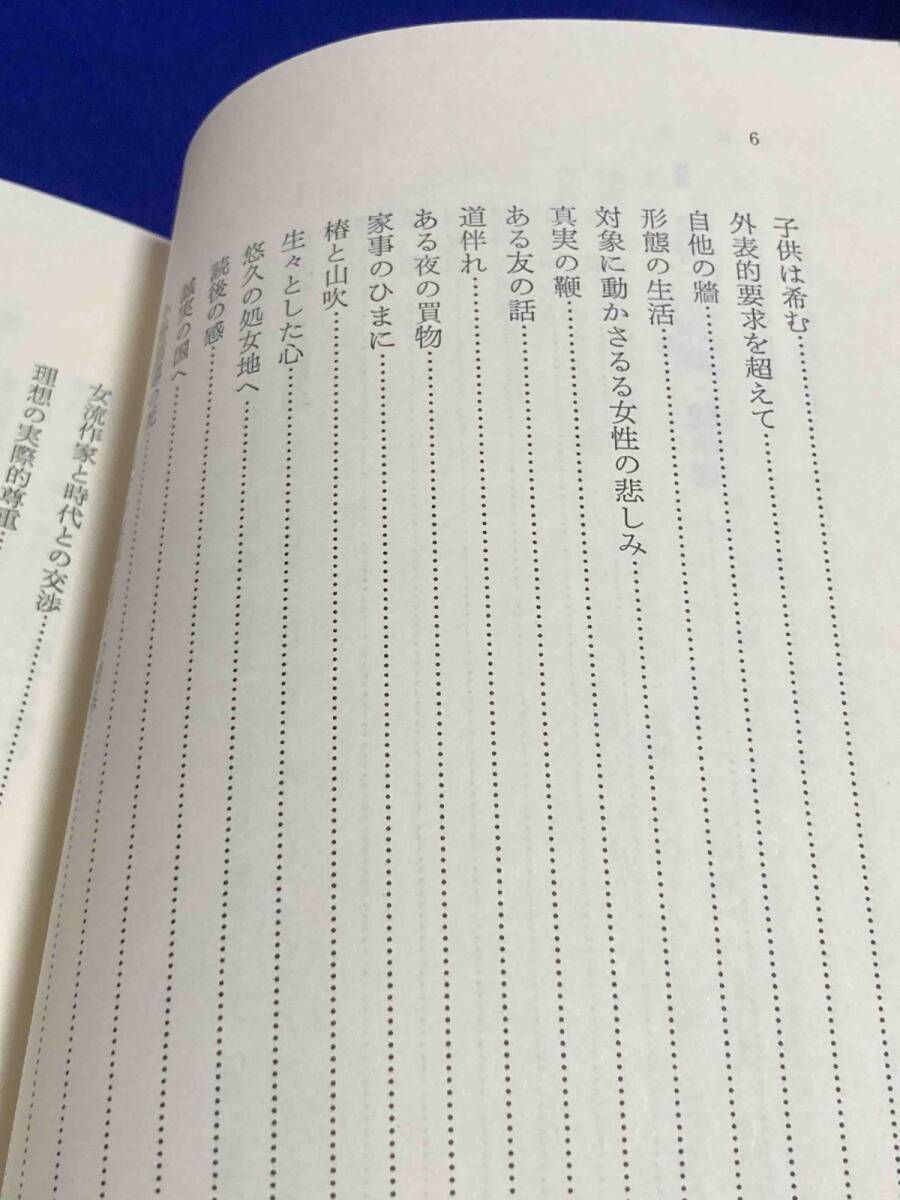 6
子供は希む
外表的要求を超えて
自他の牆
形態の生活
対象に動かさるる女性の悲しみ
真実の鞭
ある友の話
道伴れ
ある夜の買物
家事のひまに
椿と山吹
生々とした心
悠久の処女地へ
読後の感
誠実の国へ
女流作家と時代との交渉
理想の実際的尊重